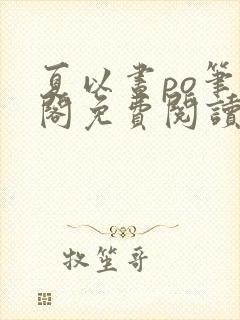 夏以晝po筆
閣免費閱讀
牧笙哥